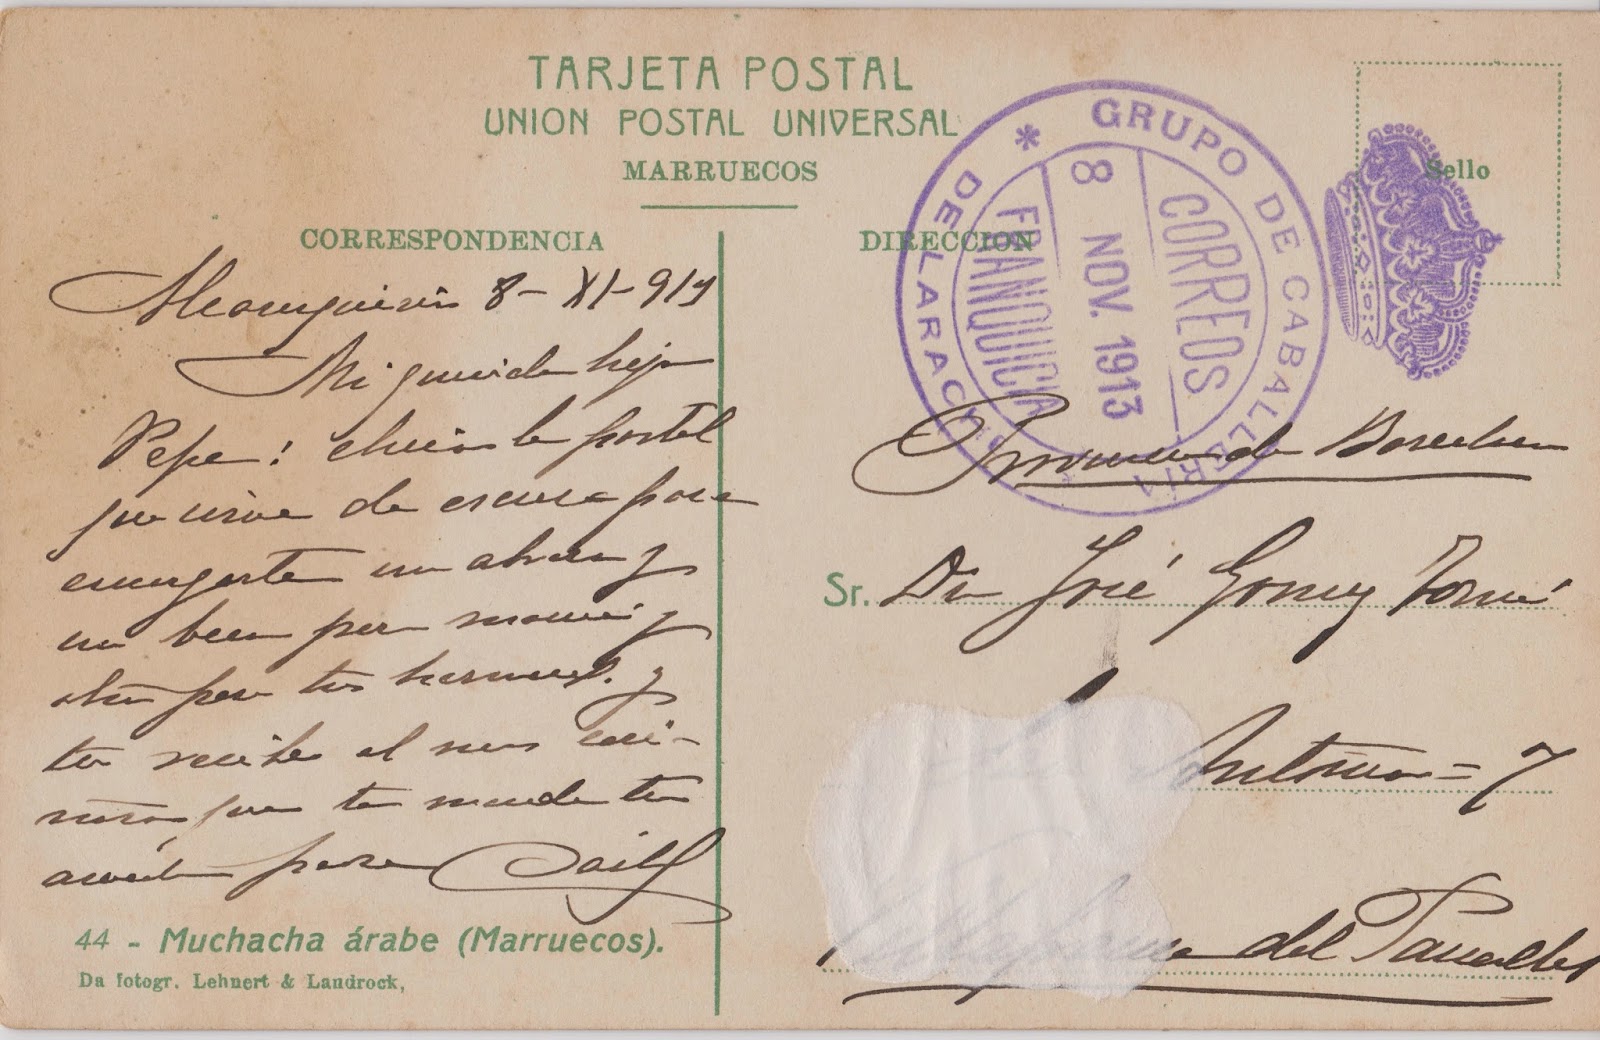 TARJETA POSTAL
UNION POSTAL UNIVERSAL
MARRUECOS
CORRESPONDENCIA
8-XI-913
Mi querido hijo
Pepe: la postal
que sirve de escusa para
un abrazo y
un beso para mamá y
otro para tus herman.s y
tu recibe el mas cari-
ñoso que te manda tu
para
44 - Muchacha árabe (Marruecos).
Da fotogr. Lehnert & Landrock,
DIRECCION
Sello
GRUPO DE CABALLERIA DE LARACHE *
CORREOS
8 NOV. 1913
FRANQUICIA
Provincia de Barcelona
Sr. Dn José Gomez
Antonio = 7
del Panadés